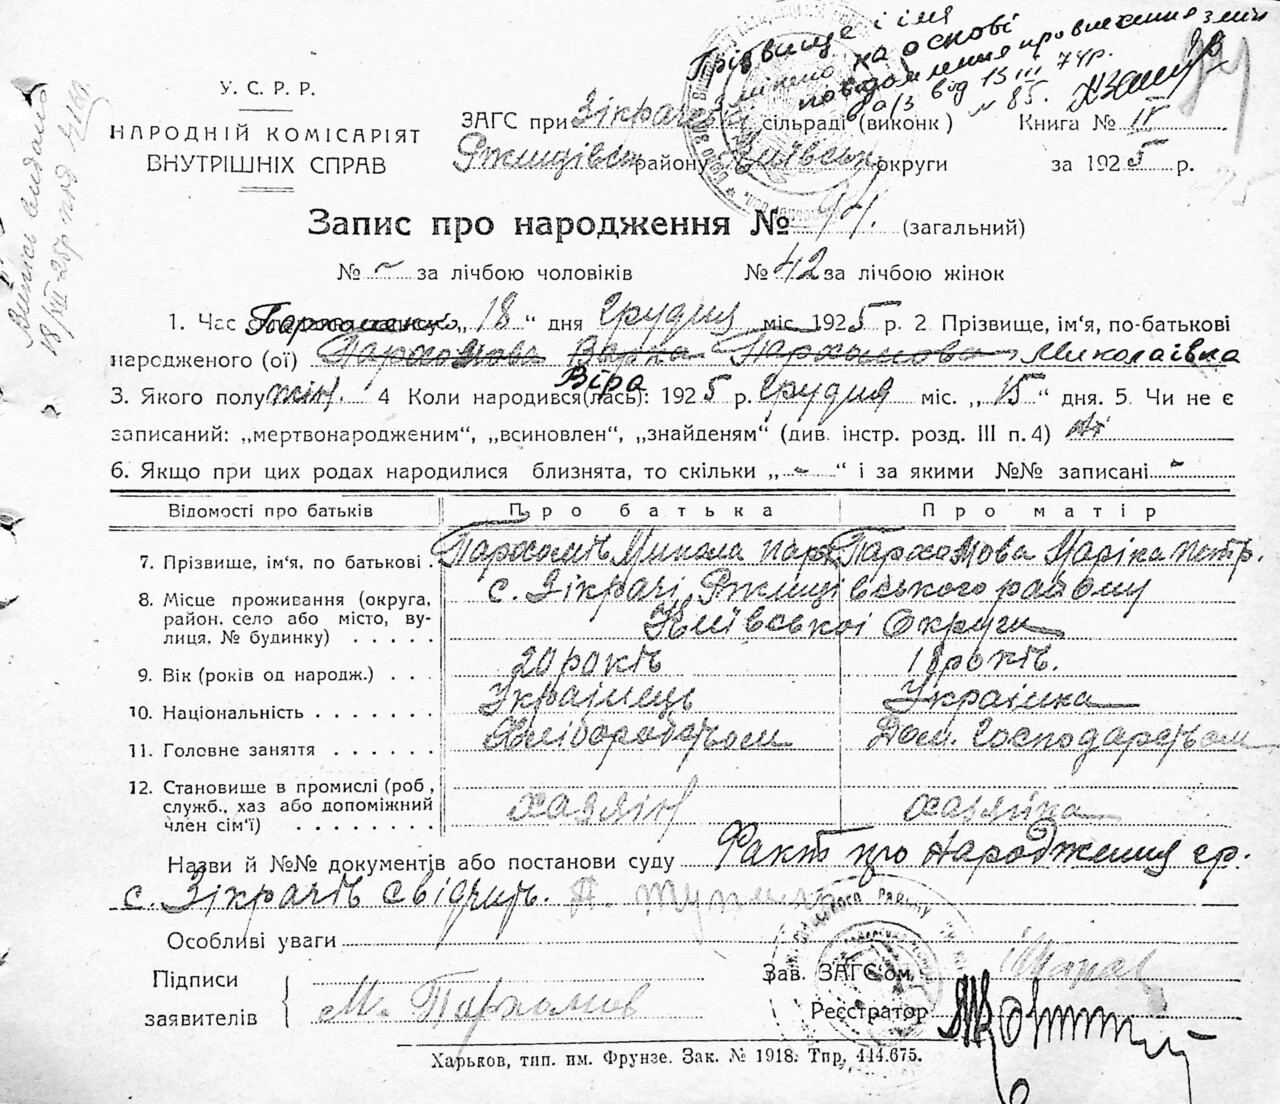 Прізвище і імя
змінено на основі
повідомлення про внесення змін
а/з від 15 III 74р.
№ 85.
Випись видано
18/XII-25р. под №
У.С.Р.Р.
НАРОДНІЙ КОМІСАРІЯТ
ВНУТРІШНІХ СПРАВ
ЗАГС при Зікрачев сільраді (виконк) Книга № IV
Ржищівськ району Київськ округи за 1925 р.
Запис про народження № 44. (загальний)
№ - за лічбою чоловіків № 42 за лічбою жінок
Пархоменко
1. Час „18“ дня Грудня міс. 1925 р. 2 Прізвище, ім'я, по-батькові
народженого (ої) Пархомова Варка Пархомова Миколаівна
Віра
3. Якого полу жін. 4 Коли народився(лась): 1925 р. Грудня міс. „15“ дня. 5. Чи не є
записаний: „мертвонародженим“, „всиновлен“, „знайденям“ (див. інстр. розд. III п. 4) Ні
6. Якщо при цих родах народилися близнята, то скільки „-“ і за якими №№ записані -
Відомості про батьків Про батька Про матір
7. Прізвище, ім'я, по батькові. Пархомів Микола Парх Пархомова Маріка Петр.
8. Місце проживання (округа, район, село або місто, вулиця, № будинку) с. Зікрачі Ржищівського району
Київськоі Округи
9. Вік (років од народж.) 20 років 18 років.
10. Національність Украінець Украінка
11. Головне заняття Хліборобством Дом. Господарством
12. Становище в промислі (роб,
служб., хаз або допоміжний
член сім'ї) хазяін хазяйка
Назви й №№ документів або постанови суду Факт про Народження гр.
с. Зікрачів свідчить.
Особливі уваги
Підписи Зав. ЗАГС'ом
заявителів М. Пархомов Реєстратор
Харьков, тип. им. Фрунзе. Зак. № 1918. Тир. 414.675.